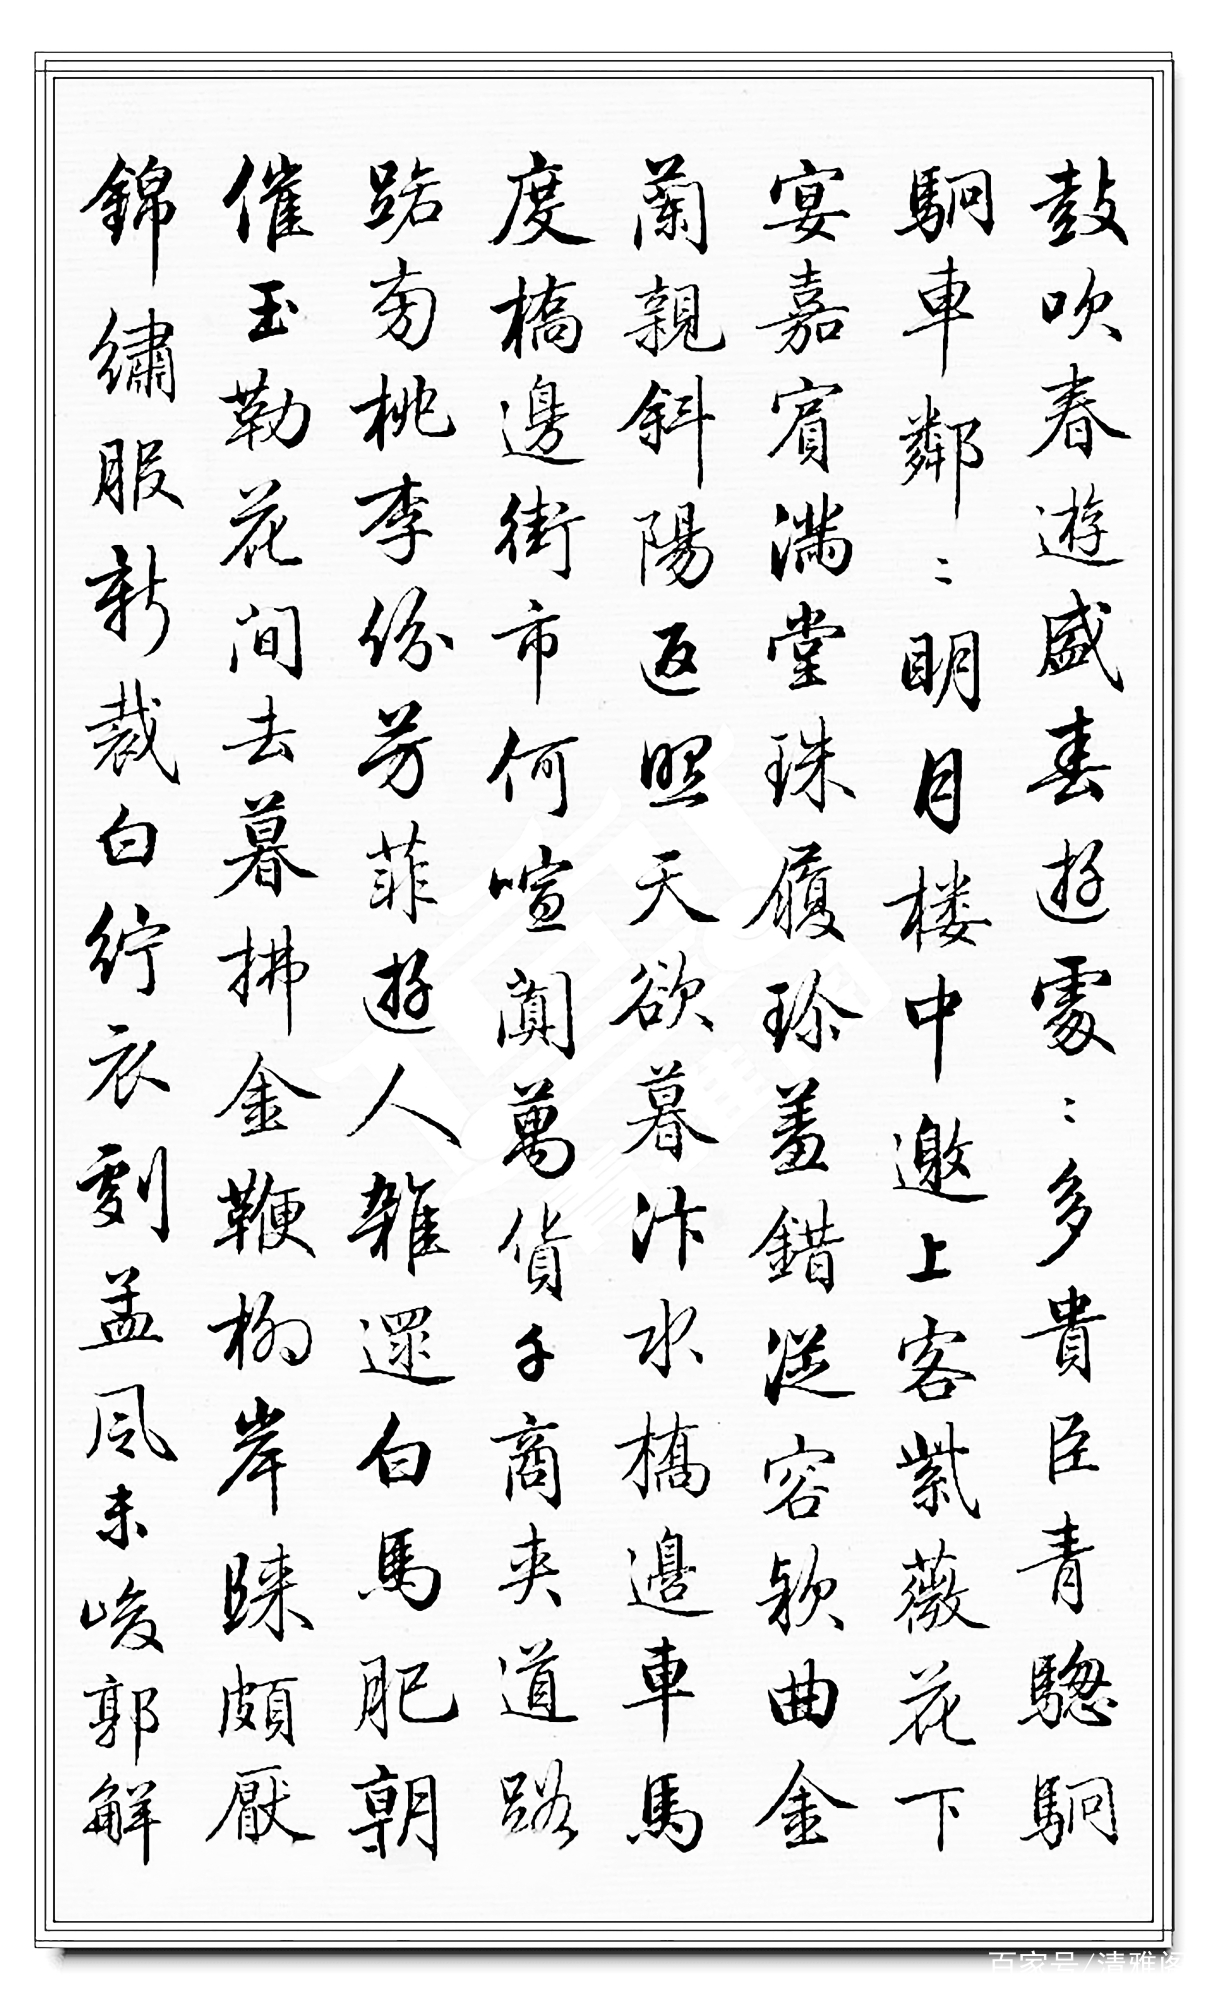 鼓吹春遊盛春遊處〻多貴臣青驄駉
駉車鄰〻明月楼中邀上客紫薇花下
宴嘉賓滿堂珠履珍羞錯從容欵曲金
蘭親斜陽返照天欲暮汴水橋邊車馬
度橋邊街市何喧闐萬貨千商夾道路
路旁桃李份芳菲遊人雜遝白馬肥朝
催玉勒花间去暮拂金鞭柳岸歸頗厭
錦繡服新裁白紵衣劇孟风未峻郭解
百家号/清雅阁